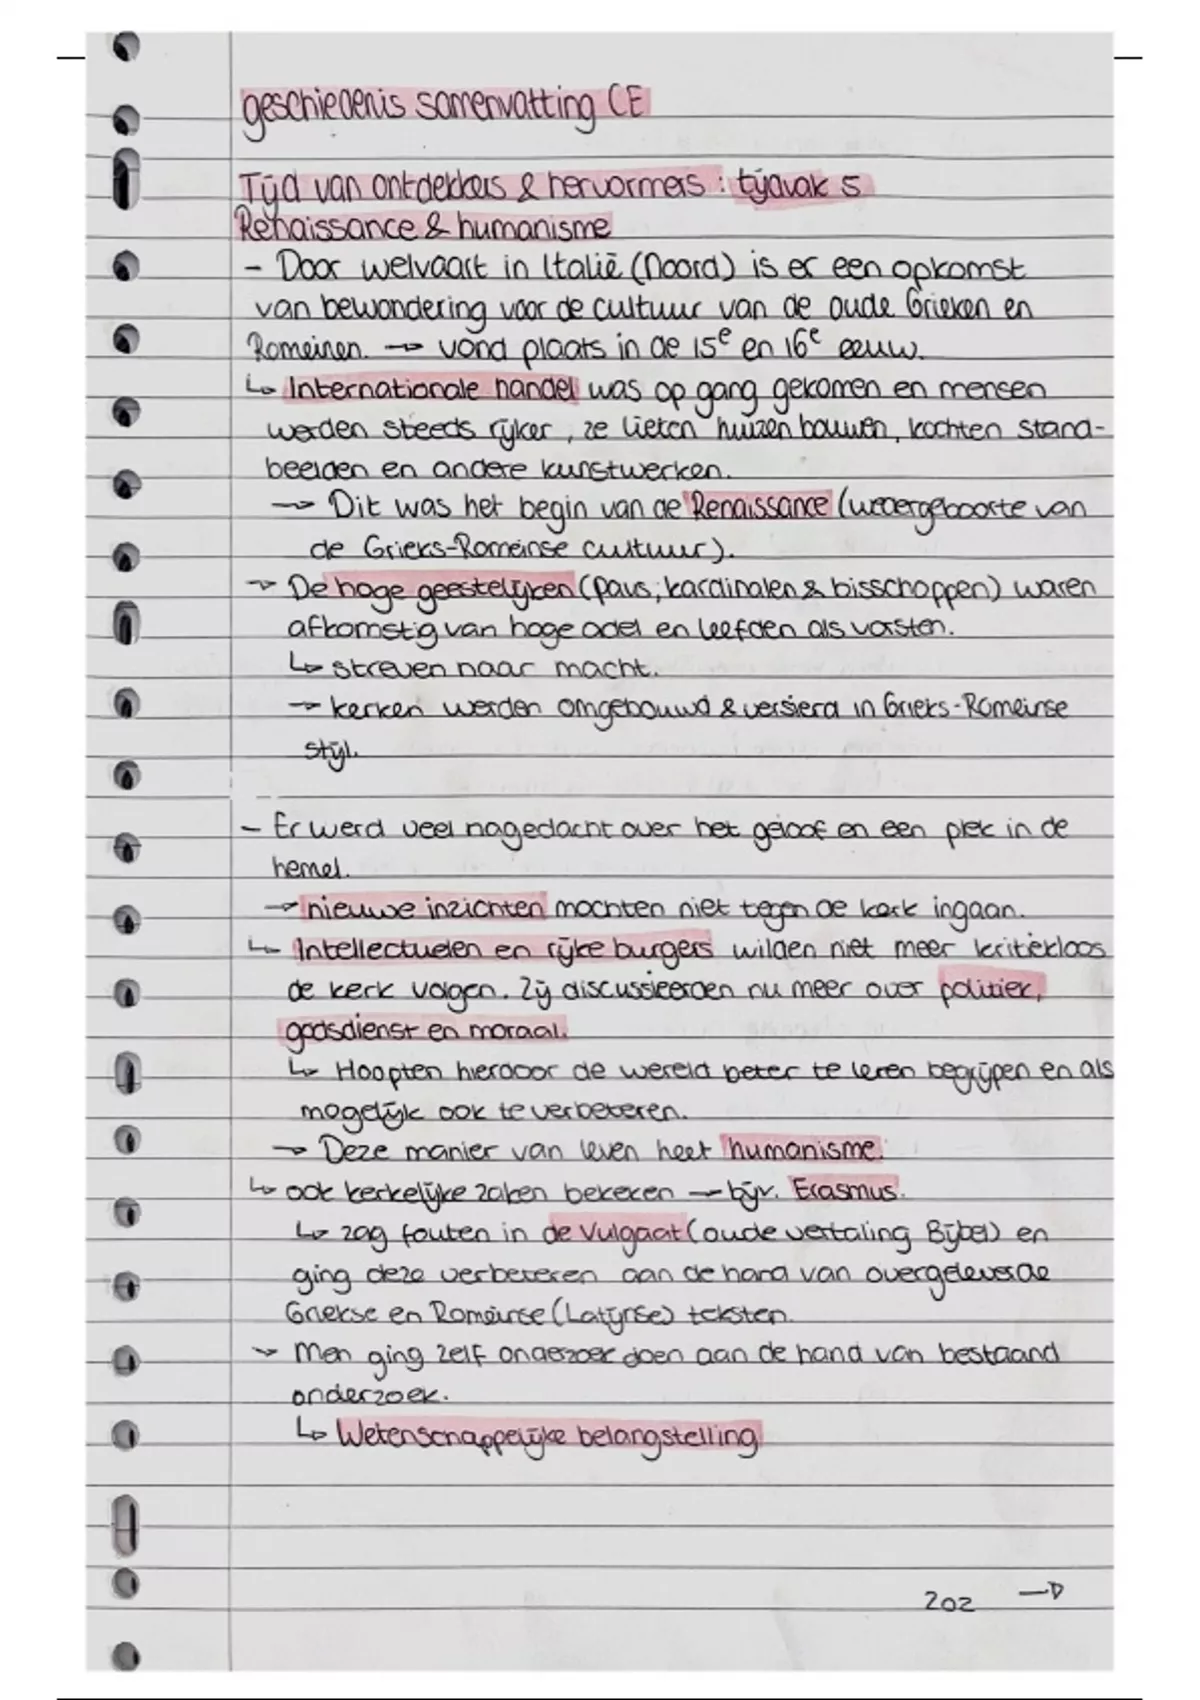 geschiedenis samenvatting CE
Tijd van ontdekkers & hervormers : tijdvak 5
Renaissance & humanisme
- Door welvaart in Italië (Noord) is er een opkomst
van bewondering voor de cultuur van de oude Grieken en
Romeinen. → vond plaats in de 15e en 16e eeuw.
↳ Internationale handel was op gang gekomen en mensen
werden steeds rijker, ze lieten huizen bouwen, kochten stand-
beelden en andere kunstwerken.
→ Dit was het begin van de Renaissance (wedergeboorte van
de Grieks-Romeinse cultuur).
→ De hoge geestelijken (paus, kardinalen & bisschoppen) waren
afkomstig van hoge adel en leefden als vorsten.
↳ streven naar macht.
→ kerken werden omgebouwd & versierd in Grieks-Romeinse
stijl.
- Er werd veel nagedacht over het geloof en een plek in de
hemel.
→ nieuwe inzichten mochten niet tegen de kerk ingaan.
↳ Intellectuelen en rijke burgers wilden niet meer kritiekloos
de kerk volgen. Zij discussieerden nu meer over politiek,
godsdienst en moraal.
↳ Hoopten hierdoor de wereld beter te leren begrijpen en als
mogelijk ook te verbeteren.
→ Deze manier van leven heet humanisme.
↳ ook kerkelijke zaken bekeken → bijv. Erasmus.
↳ zag fouten in de Vulgaat (oude vertaling Bijbel) en
ging deze verbeteren aan de hand van overgeleverde
Griekse en Romeinse (Latijnse) teksten.
→ Men ging zelf onderzoek doen aan de hand van bestaand
onderzoek.
↳ Wetenschappelijke belangstelling
202 →